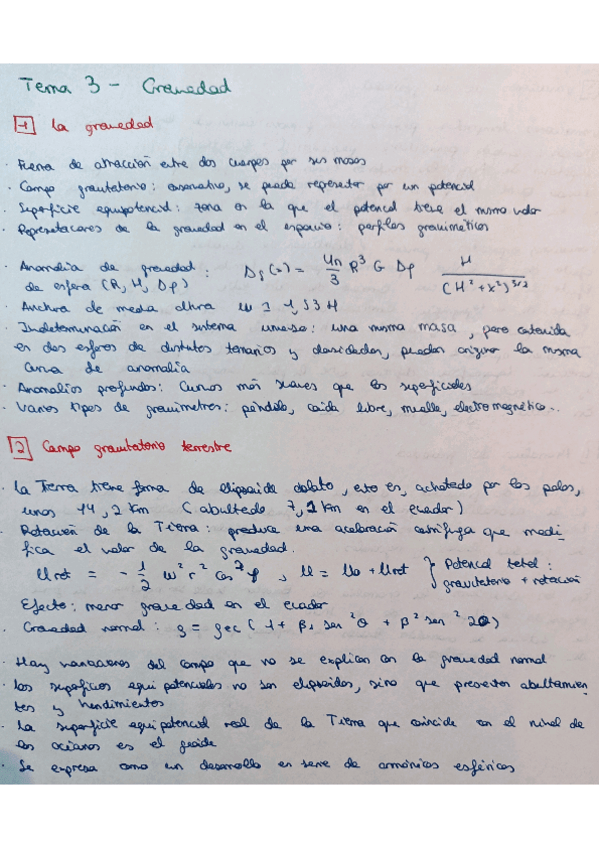 Tema 3 - Gravedad
1 La gravedad
· Fuerza de atracción entre dos cuerpos por sus masas
· Campo gravitatorio: conservativo, se puede representar por un potencial
· Superficie equipotencial: zona en la que el potencial tiene el mismo valor
· Representaciones de la gravedad en el espacio: perfiles gravimétricos
· Anomalía de gravedad: Δg(x) = 4π/3 R³ G Δρ H/(H² + x²)^3/2
de esfera (R, H, Δρ)
· Anchura de media altura w = 1,53 H
· Indeterminación en el sistema inverso: una misma masa, pero contenida
en dos esferas de distintos tamaños y densidades, pueden originar la misma
curva de anomalía
· Anomalías profundas: Curvas más suaves que las superficiales
· Varios tipos de gravímetros: péndulo, caída libre, muelle, electromagnético..
2 Campo gravitatorio terrestre
· La Tierra tiene forma de elipsoide oblato, esto es, achatado por los polos,
unos 14,2 km (abultado 7,1 km en el ecuador)
· Rotación de la Tierra: produce una aceleración centrífuga que modi-
fica el valor de la gravedad.
Urot = - 1/2 ω² r² cos² φ , U = U0 + Urot } Potencial total: gravitatorio + rotación
Efecto: menor gravedad en el ecuador
· Gravedad normal: g = gec (1 + β₁ sen²θ + β² sen² 2θ)
· Hay variaciones del campo que no se explican con la gravedad normal
· Las superficies equipotenciales no son elipsoides, sino que presentan abultamien
tos y hundimientos
· La superficie equipotencial real de la Tierra que coincide con el nivel de
los océanos es el geoide
· Se expresa como un desarrollo en serie de armónicos esféricos